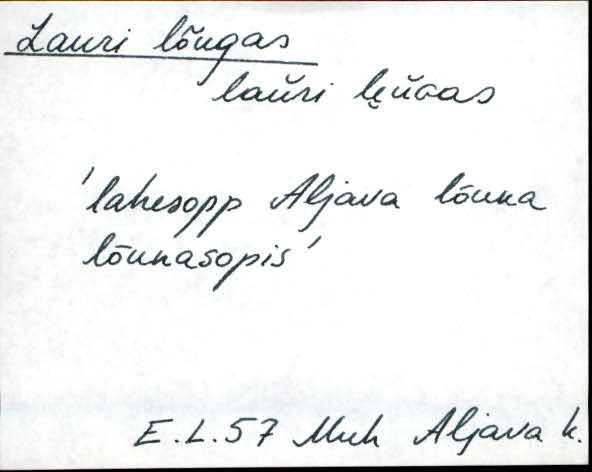 Lauri lõugas
laŭri lęŭɢas
'lahesopp Aljava lõuna
lõunasopis'
E.L.57 Muh Aljava k.